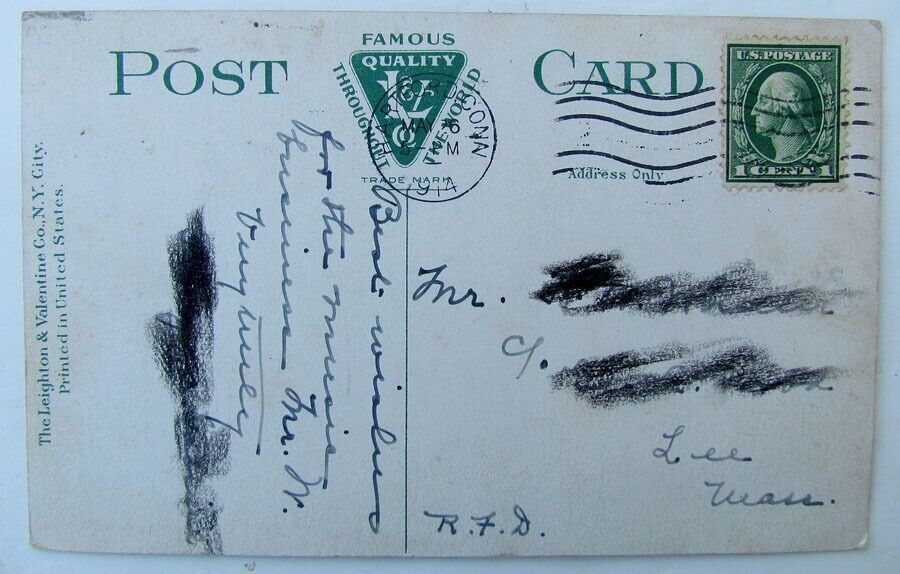 POST CARD
FAMOUS
QUALITY
THROUGHOUT
THE WORLD
L&V
TRADE MARK
HARTFORD CONN
MAY 6
PM
1914
U.S. POSTAGE
1 CENT 1
Address Only
The Leighton & Valentine Co., N.Y. City.
Printed in United States.
Best wishes
for the music
business Mr. W.
Very truly
Mr.
c/o
Lee
Mass.
R.F.D.